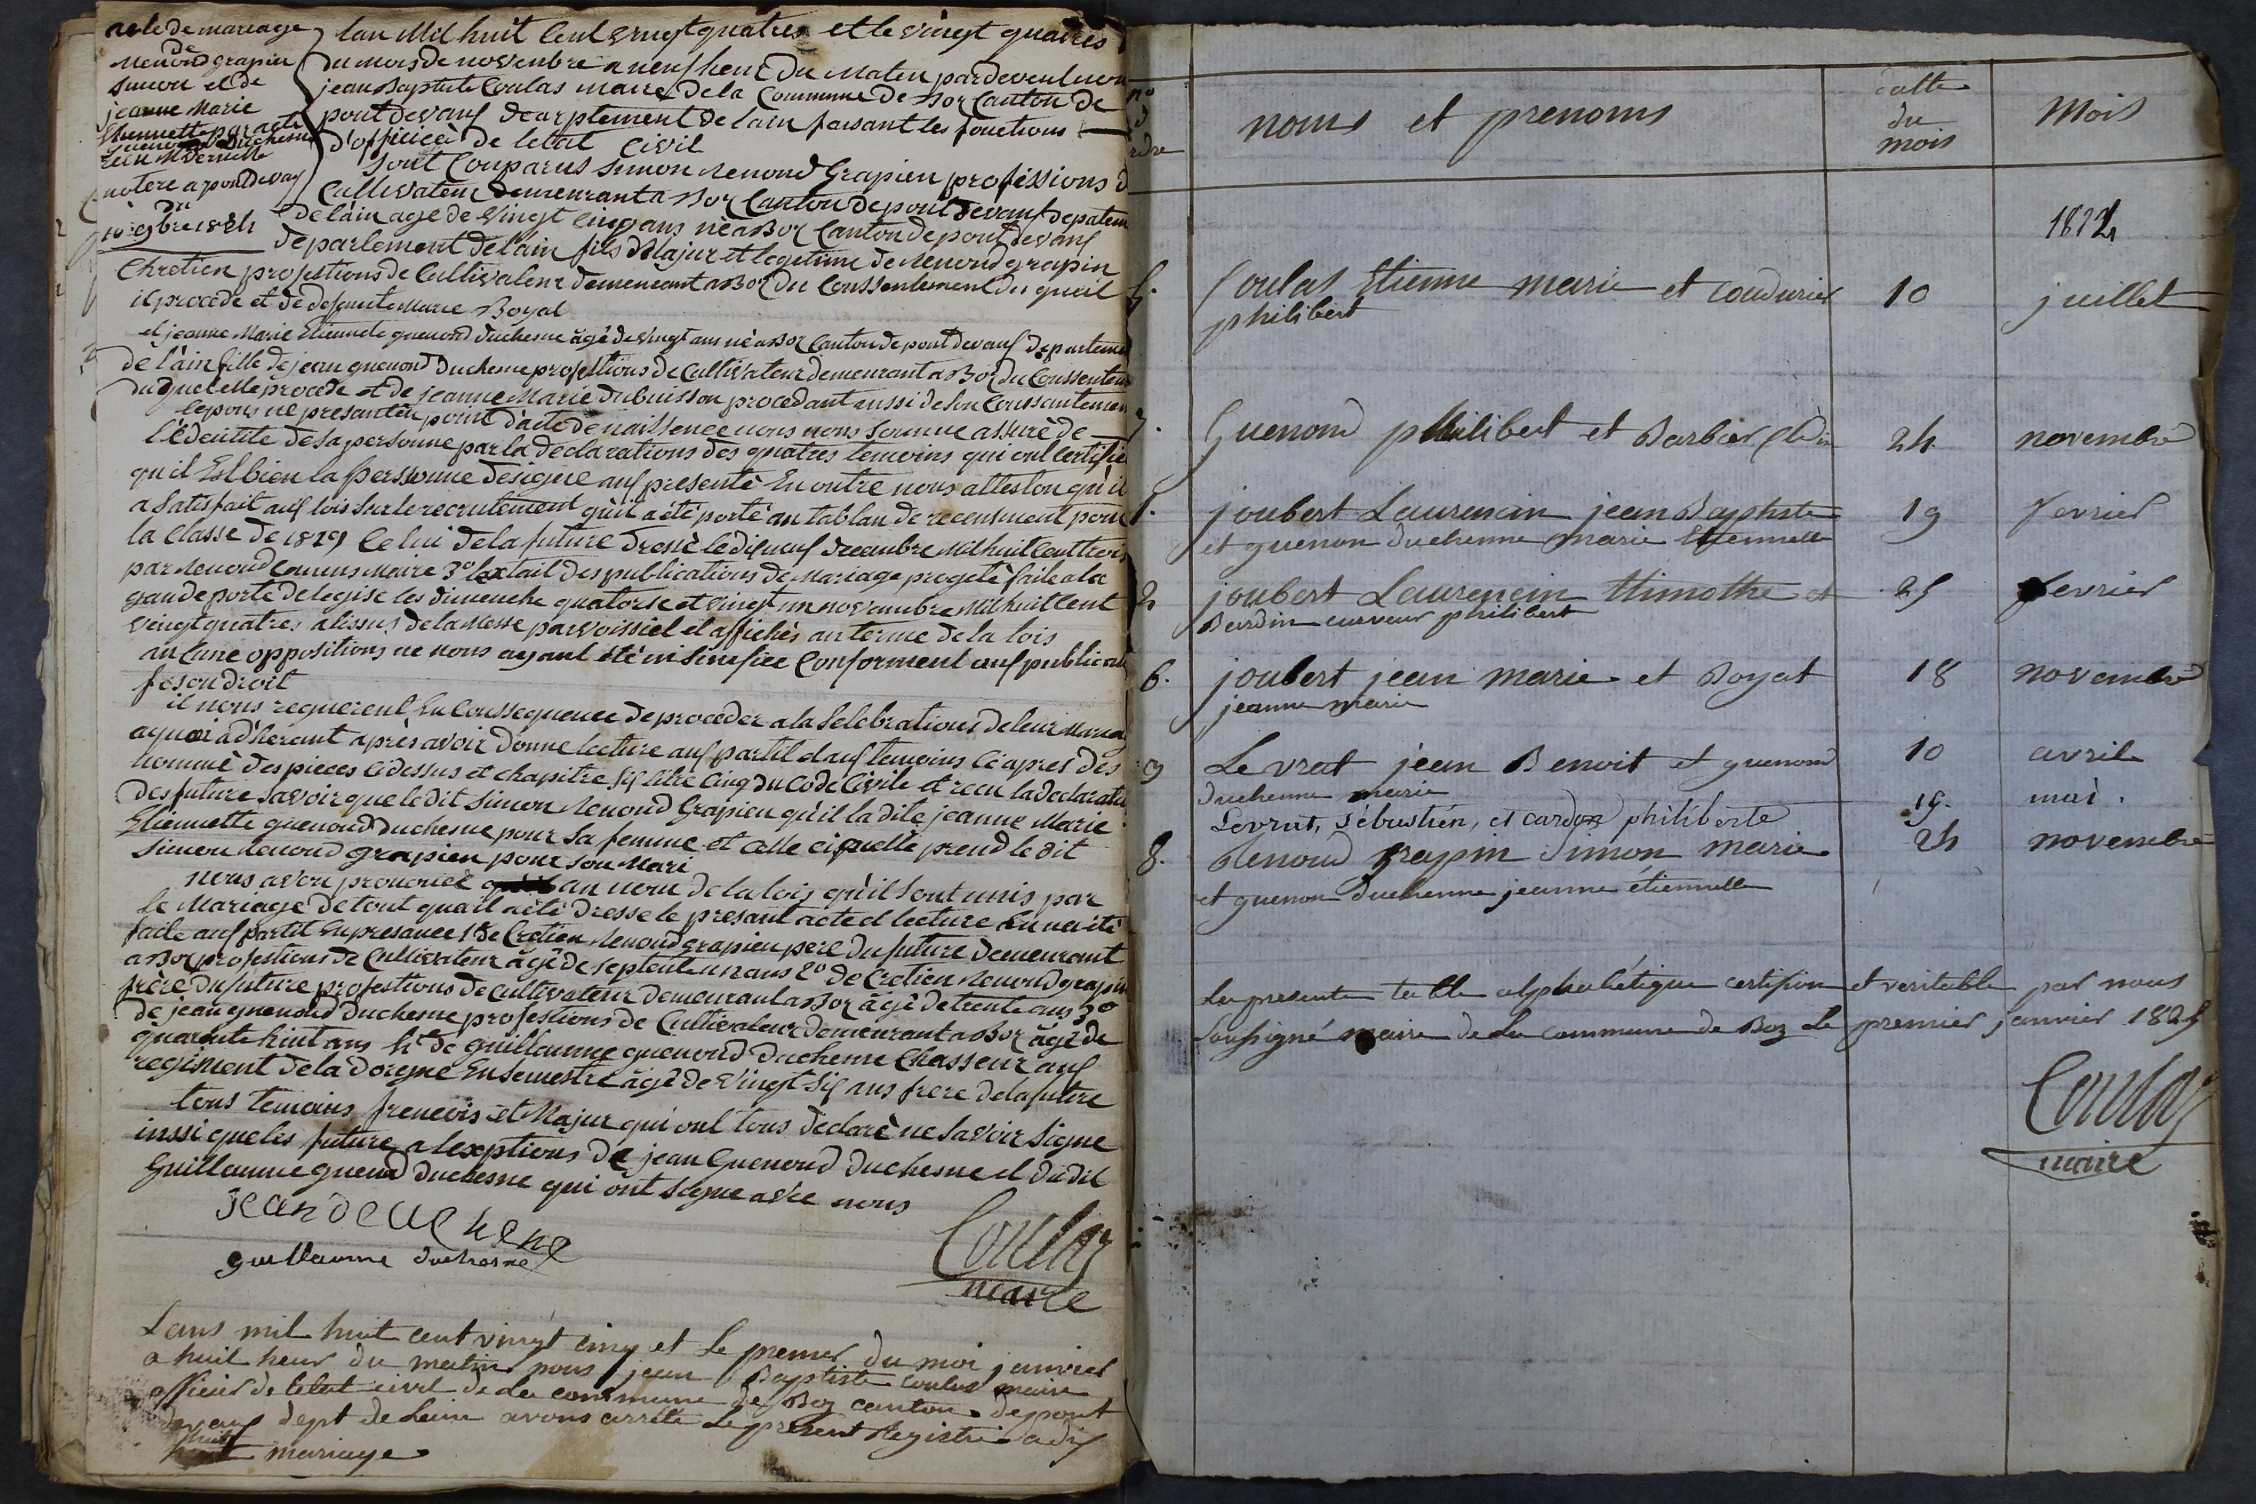 acte de mariage
de
Renoud grapin
Simon et de
jeanne Marie
Etiennette
notere a pontdevaux
du
10 9bre 1824
lan Mil huit Cent vingt quatres et le vingt quatres
du mois de novembre a neuf heur du Maten pardevent nous
jean Baptiste Coulas maire de la Commune de Boz Canton de
pont devaux dearptement de lain faisant les fonctions
d'officiéé de letat Civil
Sont Comparus Simon Renoud Grapien proféssions d
Cultivateur demeurant a Boz Canton de pont devaux depatem
de l'ain age de vingt Cinq ans nè a Boz Canton de pont devaux
departement de l'ain fils Majur et legetime de Renoud grapin
Chretien profestions de Cultivateur demeurant a Boz du Conssentement du queil
il procede et de defeunte Marie Boyat
et jeanne Marie Etiennete guenoud duchesne âgé de vingt ans nè a Boz Canton de pont devaux departeme
de l'ain fille de jean guenoud Duchesne profestions de Cultivateur demeurant a Boz du Conssentem
du quel elle procede et de jeanne Marie Dubuisson procedant aussi de son Conssantemen
lepous ne presanten point d'acte de naissence nous nous somme assurè de
l'édentité de sa personne par la déclarations des quatres temoins qui ont certifie
qu'il Est bien la perssonne désigné aux presente En outre nous atteston qu'il
a satisfait aux lois sur le recrutement qu'it a été porté au tablau de recensment pour
la Classe de 1819 Celui de la future dressè le dix neuf decembre Mil huit Cent trois
par Renoud Comens maire 3º lextrait des publications de Mariage progeté faite a la
gande porte de legise les dimenche quatorse et vingt un novembre Mil huit Cent
vingt quatres a lissus de la Messe parvoissiel et affichés au terme de la lois
au Cune oppositions ne nous ayant été ni sinifiee Conforment aux publicati
feson droit
il nous requerent En Conssequence de proceder a la Selebrations de leur Maria
aquoi àdhérant apres avoir donne lecture aux partit et aux temoins Ci apres dés
nommé des pieces Cidessus et chapitre six titre Cinq du Code Civile et recu la declarati
des future savoir que le dit Simon Renoud Grapien qu'il la dite jeanne Marie
Etiennette guenoud duchesne pour sa femme et celle ci quelle prend le dit
Simon Renoud grapien pour son Mari
nous avon prononcé au nom de la lois qu'il sont unis par
le Mariage de tout quoi il a été dresse le presant acte et lecture En na été
faite aux partit En presance 1º de Cretien Renoud grapien pere du future demeurant
a Boz profestions de Cultivateur âgé de septente un ans 2º de Cretien Renoud grapin
frère du future profestions de Cultivateur demeurant a Boz âgè de trente ans 3º
de jean guenoud Duchesne profestions de Cultivateur demeurant a Boz âgé de
quarente huit ans 4º de guillaume guenoud duchesne Chasseur aux
regiment de la Dorgne En semestre âgé de vingt six ans frere de la future
tous temoins frencois et Majur qui ont tous declarè ne savoir signe
inssi que les future a lexptions de jean Guenoud duchesne et du dit
Guillaume guenoud duchesne qui ônt signe avec nous
jean deuchene
guillaume duchesne
Coulas
maire
Lans mil huit cent vingt cinq et le premier du moi janvier
a huit heur du matin nous jean Baptiste coulas maire
officier de l'etat civil de la commune de Boz canton de pont
devaux dept de Lain avons arrete Le present Registre a dix
huit mariage
no
d
rdre
noms et prenoms
datte
du
mois
Mois
1824
5. Coulas Etienne marie et coudurier 10 juillet
philibert
7. Guenoud philibert et Barbier Cldin 24 novembre
1. joubert Laurencin jean Baptiste 19 fevrier
et guenon duchenne marie Etiennette
2 joubert Laurencin thimothe et 25 fevrier
Bardin curveur philibert
6. joubert jean marie et Boyat 18 novembre
jeanne marie
3 Levrat jean Benoit et guenoud 10 avril
duchenne marie
Levrat, sébastien, et cardon philiberte 19. mai.
8. Renoud grapin Simon marie 24 novembre
et guenon duchenne jeanne étiennette
La presente table alphabétique certifion et veritable par nous
soussigné maire de la commune de Boz Le premier janvier 1825
Coulas
maire